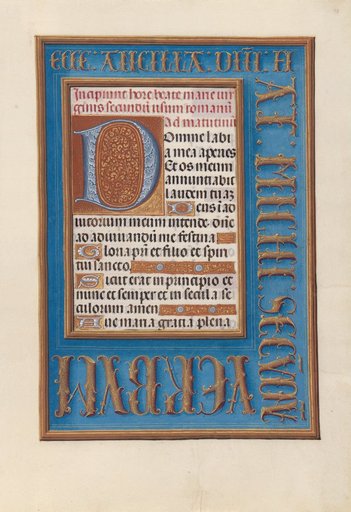 ECCE · ANCILLA · DñI · FI
AT · MICHI · SECVNDV̄
VERBVM
Incipiunt hore beate marie vir
ginis secundū usum romanū
Ad matutinū
Domine labi
a mea aperies
Et os meum
annuntiabit
laudem tuā
Deus ī ad
iutorium meum intende dñe
ad adiuuandū me festina
Gloria prī et filio et spiri
tui sancto
Sicut erat in principio et
nunc et semper et in secula se
culorum amen
Aue maria gratia plena